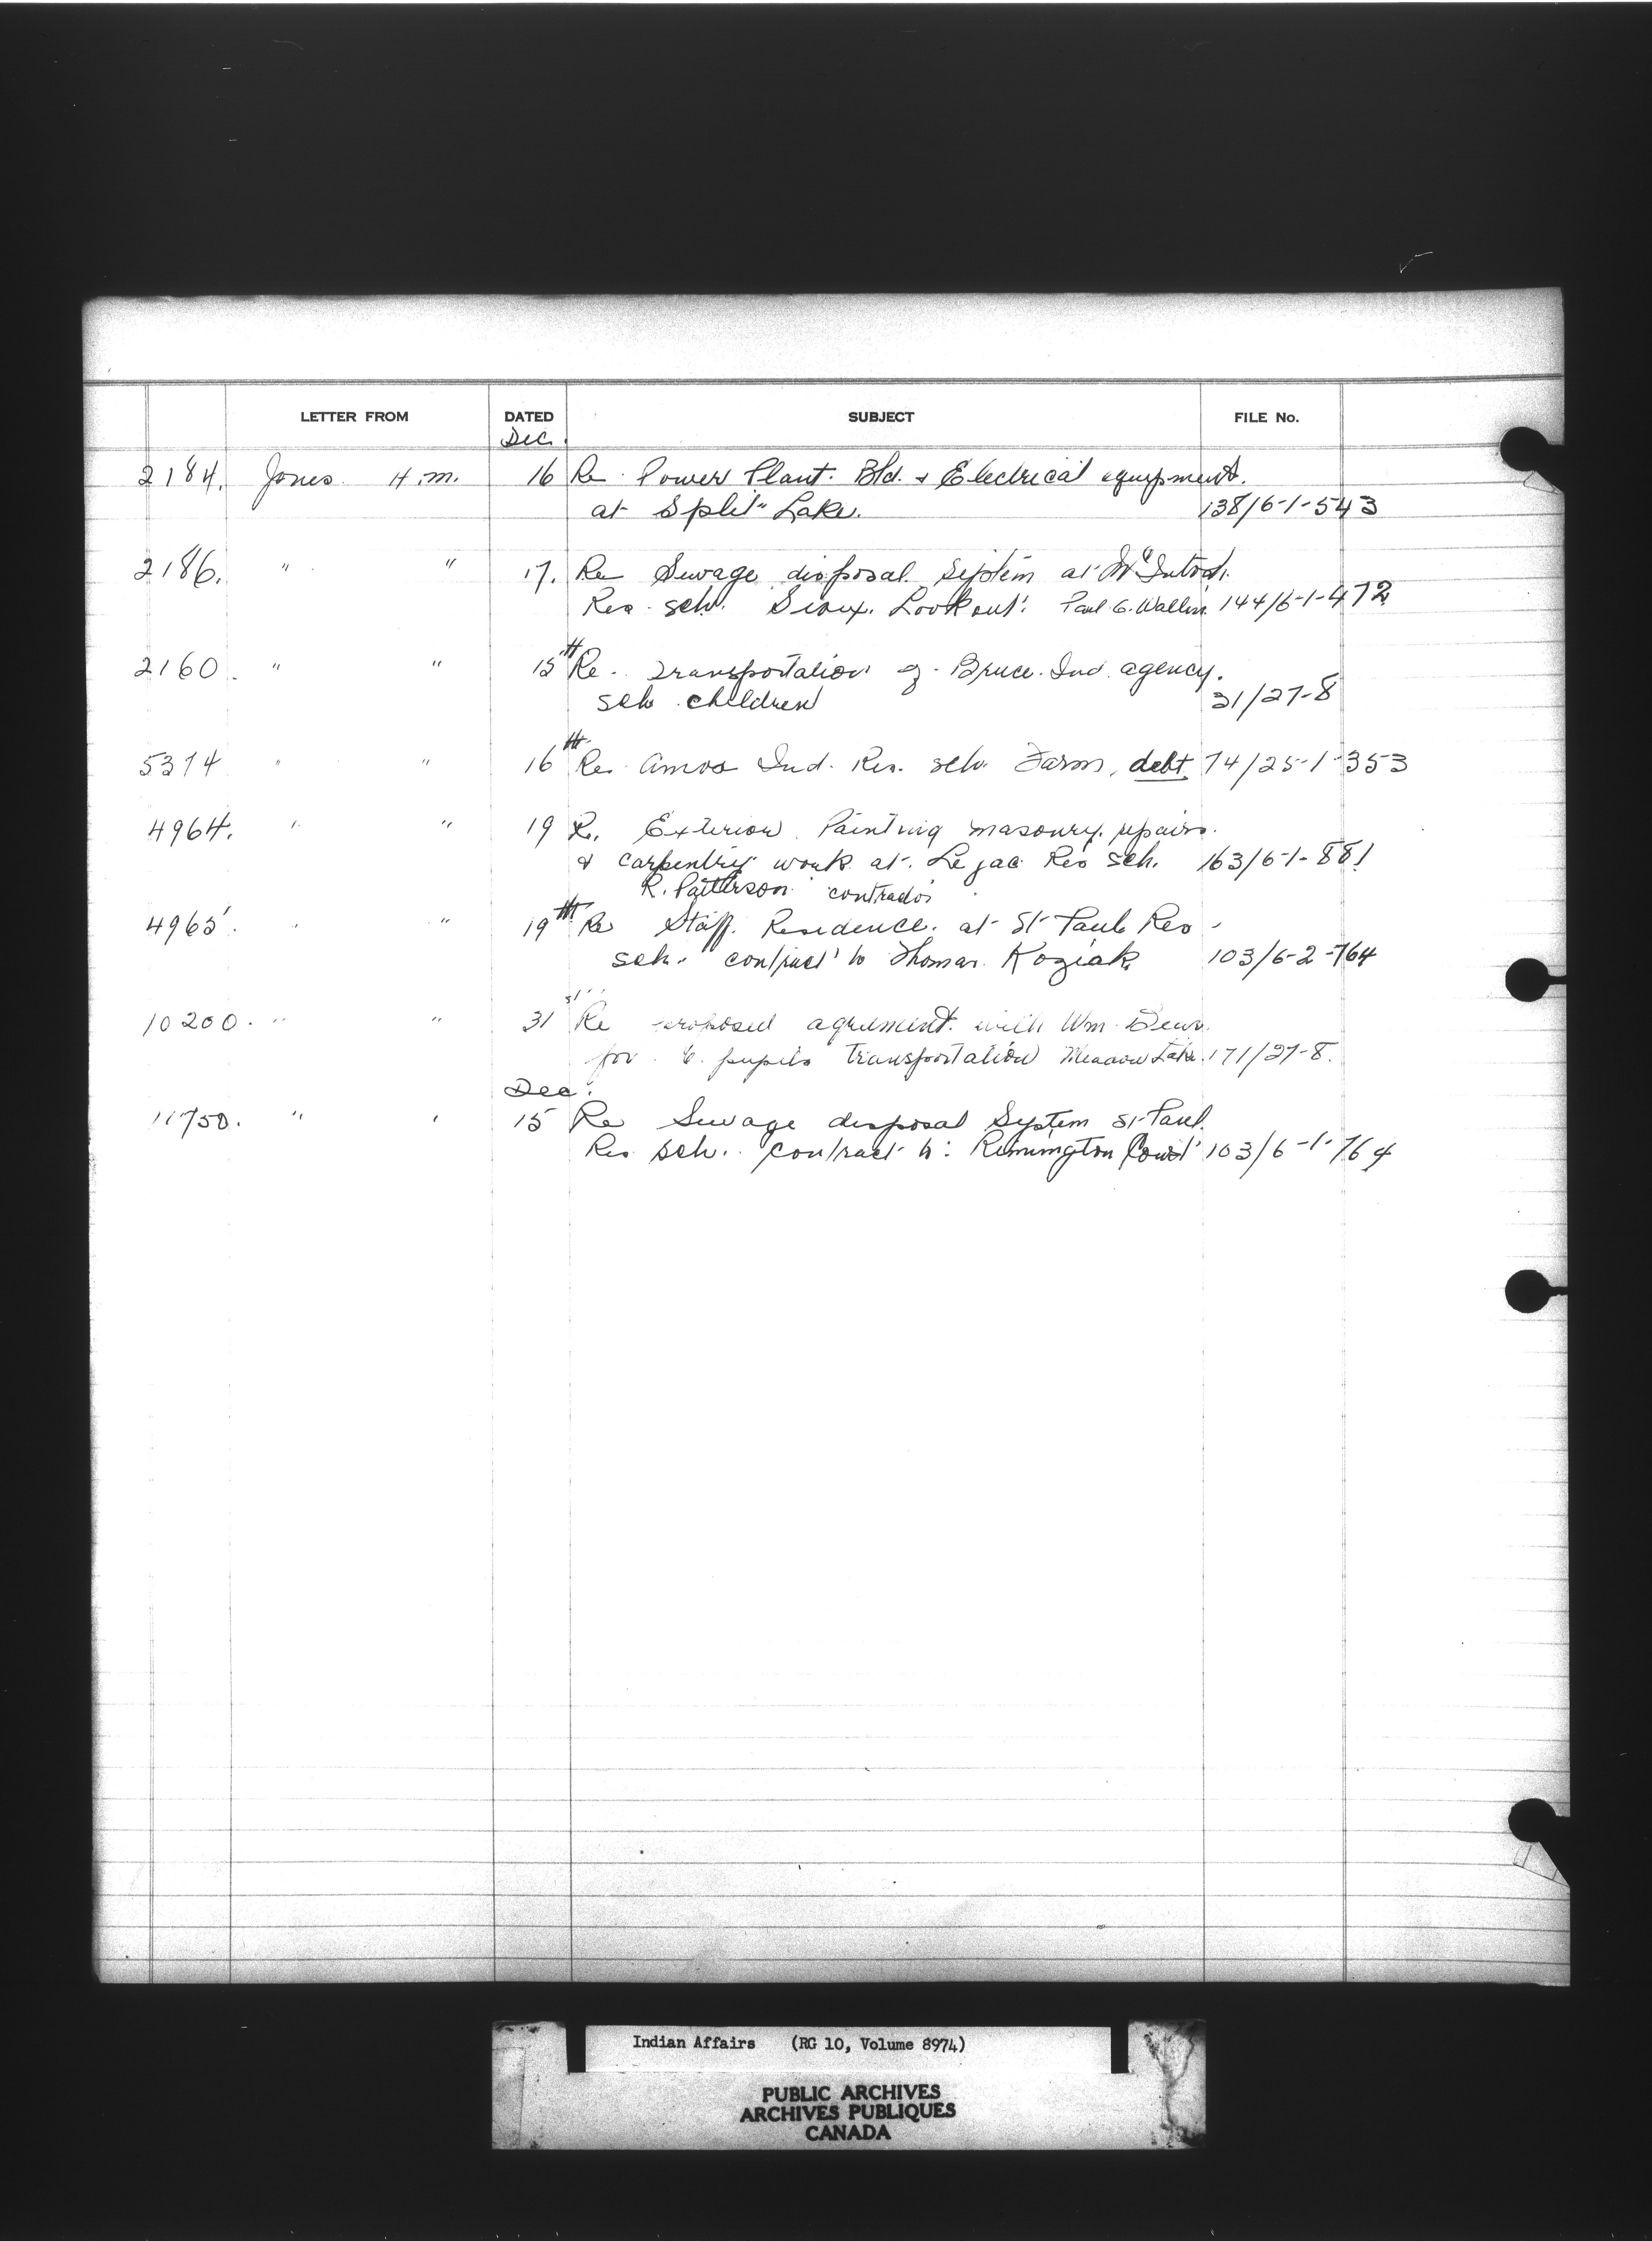 LETTER FROM DATED SUBJECT FILE No.
Dec.
2184. Jones H.M. 16 Re Power Plant. Bld. & Electrical equipment.
at Split Lake. 138/6-1-543
2186. " " 17. Re Sewage disposal System at McIntosh.
Res. sch. Sioux. Lookout. Paul G. Wallin 144/6-1-472
2160. " " 15th Re. Transportation of Bruce. Ind. agency.
sch children 21/27-8
5374 " " 16th Re. Amos Ind. Res. sch. Farm, debt 74/25-1-353
4964. " " 19 R. Exterior Painting masonry. repairs.
& carpentry work at. Lejac Res sch. 163/6-1-881
R. Patterson contractor
4965. " " 19th Re Staff. Residence. at St Paul Res
sch. contract to Thomas Koziak 103/6-2-764
10200. " " 31st Re proposed agreement. with Wm.
for 6. pupils transportation Meadow Lake. 171/27-8.
Dec.
11750. " " 15 Re Sewage disposal System St Paul.
Res sch. contract to: Remington Const 103/6-1-764
Indian Affairs (RG 10, Volume 8974)
PUBLIC ARCHIVES
ARCHIVES PUBLIQUES
CANADA